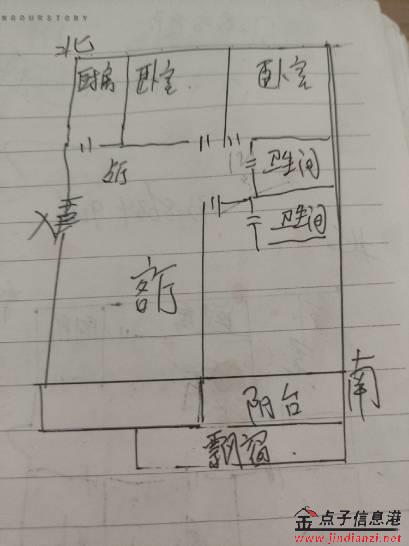 NGOURSTORY
北
厨房 卧室 卧室
卫生间
卫生间
客厅
南
阳台
飘窗
金点子信息港
www.jindianzi.net